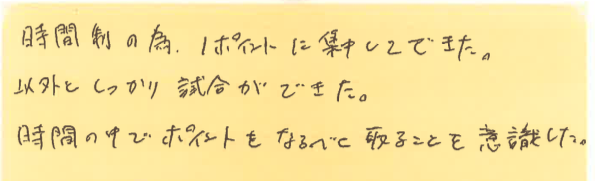 時間制の為、1ポイントに集中してできた。
以外としっかり試合ができた。
時間の中でポイントをなるべく取ることを意識した。